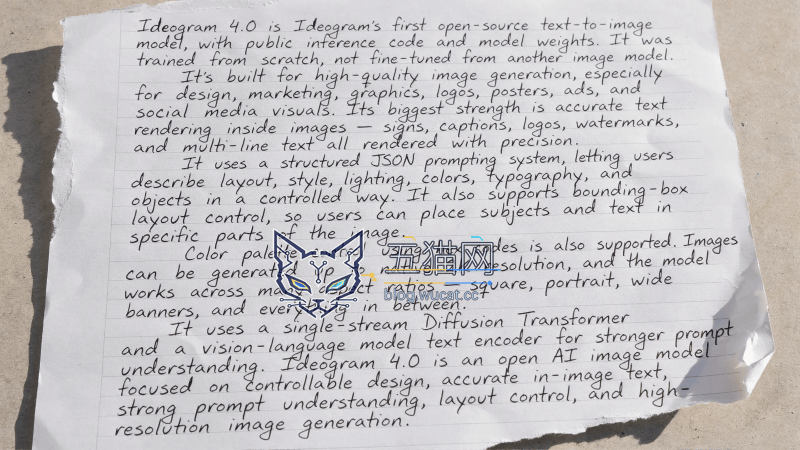 Ideogram 4.0 is Ideogram's first open-source text-to-image
model, with public inference code and model weights. It was
trained from scratch, not fine-tuned from another image model.
It's built for high-quality image generation, especially
for design, marketing, graphics, logos, posters, ads, and
social media visuals. Its biggest strength is accurate text
rendering inside images — signs, captions, logos, watermarks,
and multi-line text all rendered with precision.
It uses a structured JSON prompting system, letting users
describe layout, style, lighting, colors, typography, and
objects in a controlled way. It also supports bounding-box
layout control, so users can place subjects and text in
specific parts of the image.
Color is also supported. Images
can be resolution, and the model
works across ratios — square, portrait, wide
banners, and in between.
五猫网
blog.wucat.cc
It uses a single-stream Diffusion Transformer
and a vision-language model text encoder for stronger prompt
understanding. Ideogram 4.0 is an open AI image model
focused on controllable design, accurate in-image text,
strong prompt understanding, layout control, and high-
resolution image generation.